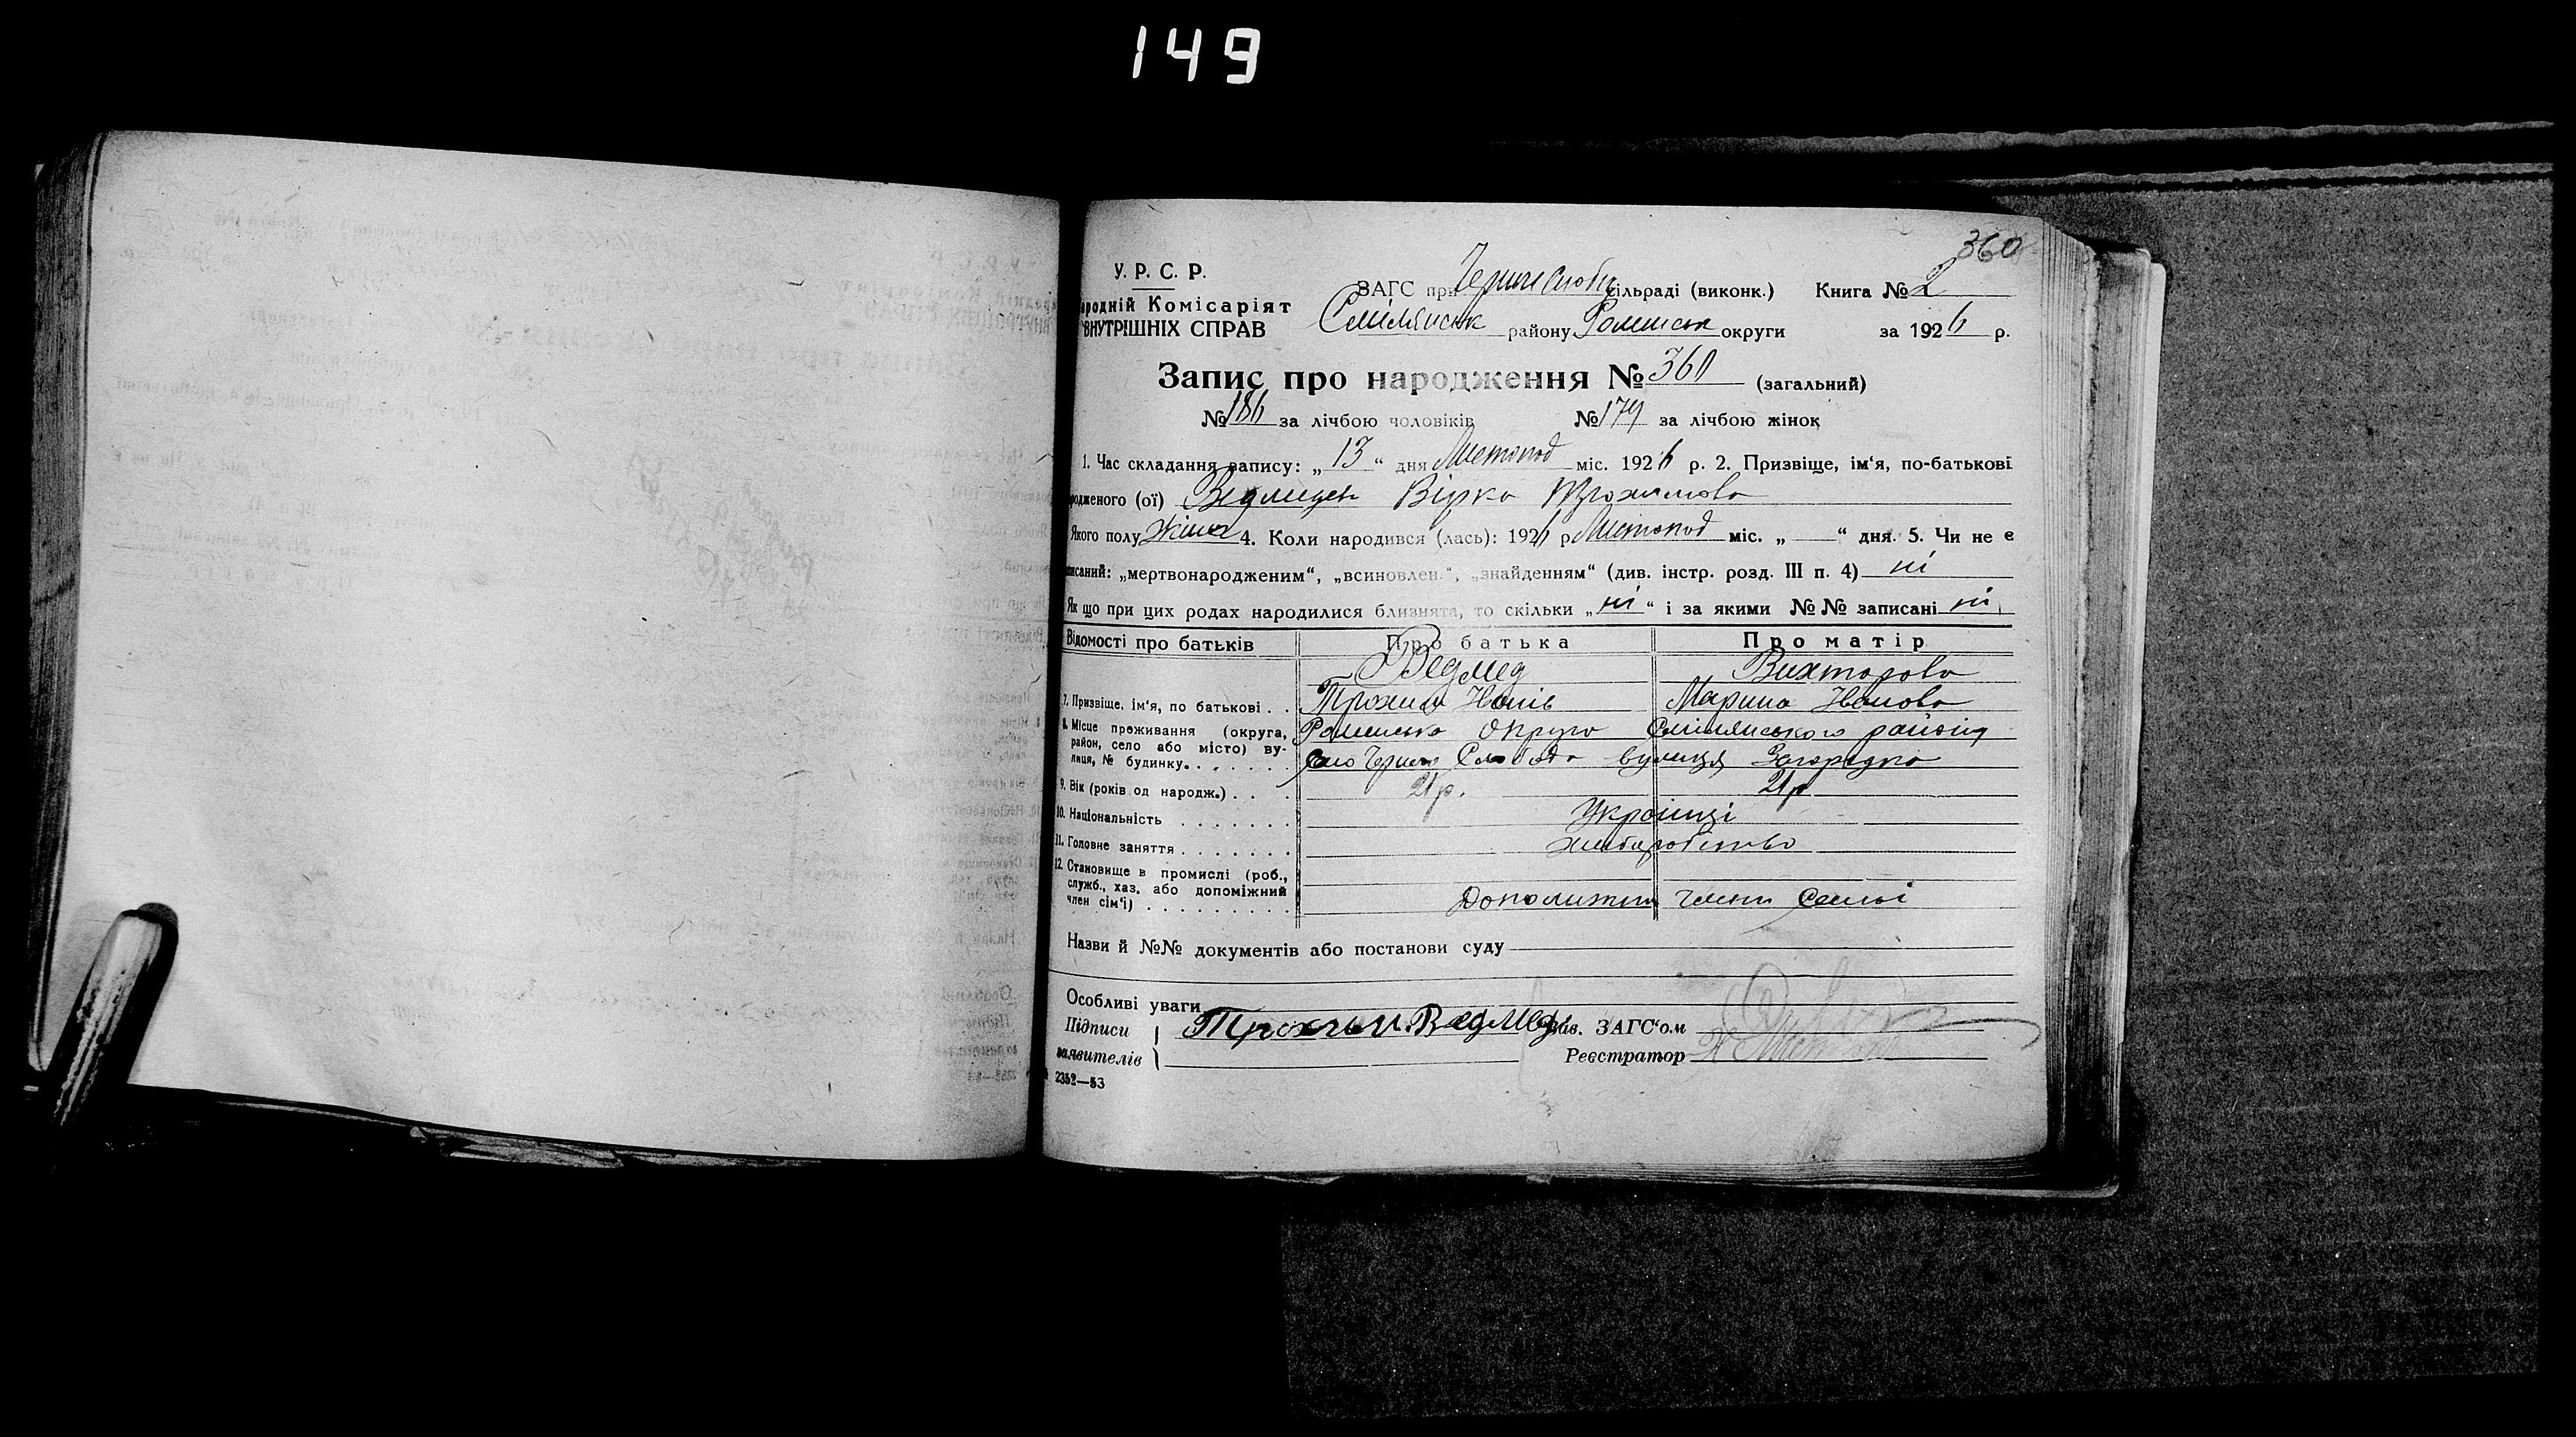 149
360
У. Р. С. Р.
ародній Комісаріят
ВНУТРІШНІХ СПРАВ
ЗАГС при сільраді (виконк.) Книга № 2
Смілянськ району Роменськ округи за 1926 р.
Запис про народження № 360 (загальний)
№ 186 за лічбою чоловіків № 179 за лічбою жінок
1. Час складання запису: „ 13 “ дня Листопад міс. 1926 р. 2. Призвіще, ім‘я, по-батькові
родженого (ої) Ведмедев Вірка Трохимова
Якого полу Жіноч 4. Коли народився (лась): 1926 р. Листопад міс. „ — “ дня. 5. Чи не є
писаний: „мертвонародженим“, „всиновлен.“, „знайденням“ (див. інстр. розд. III п. 4) ні
Як що при цих родах народилися близнята, то скільки „ ні “ і за якими №№ записані ні
Відомості про батьків Про батька Про матір
Ведмед Вихторова
7. Призвіще, ім‘я, по батькові . . Трохим Іванів Марина Іванова
8. Місце проживання (округа, район, село або місто) вулиця, № будинку. Роменська округа Смілянського району
село Чернеча Слобода вулиця Загородка
9. Вік (років од народж.) . . . 21 р. 21 р
10. Національність . . . . . . . Українці
11. Головне заняття . . . . . . . хлиборобство
12. Становище в промислі (роб., служб., хаз. або допоміжний член сім‘ї) . . . . . . . . . Дополижни члени семьі
Назви й №№ документів або постанови суду
Особливі уваги
Підписи Трохим Ведмедь Зав. ЗАГС‘ом
заявителів Реєстратор
2352—53